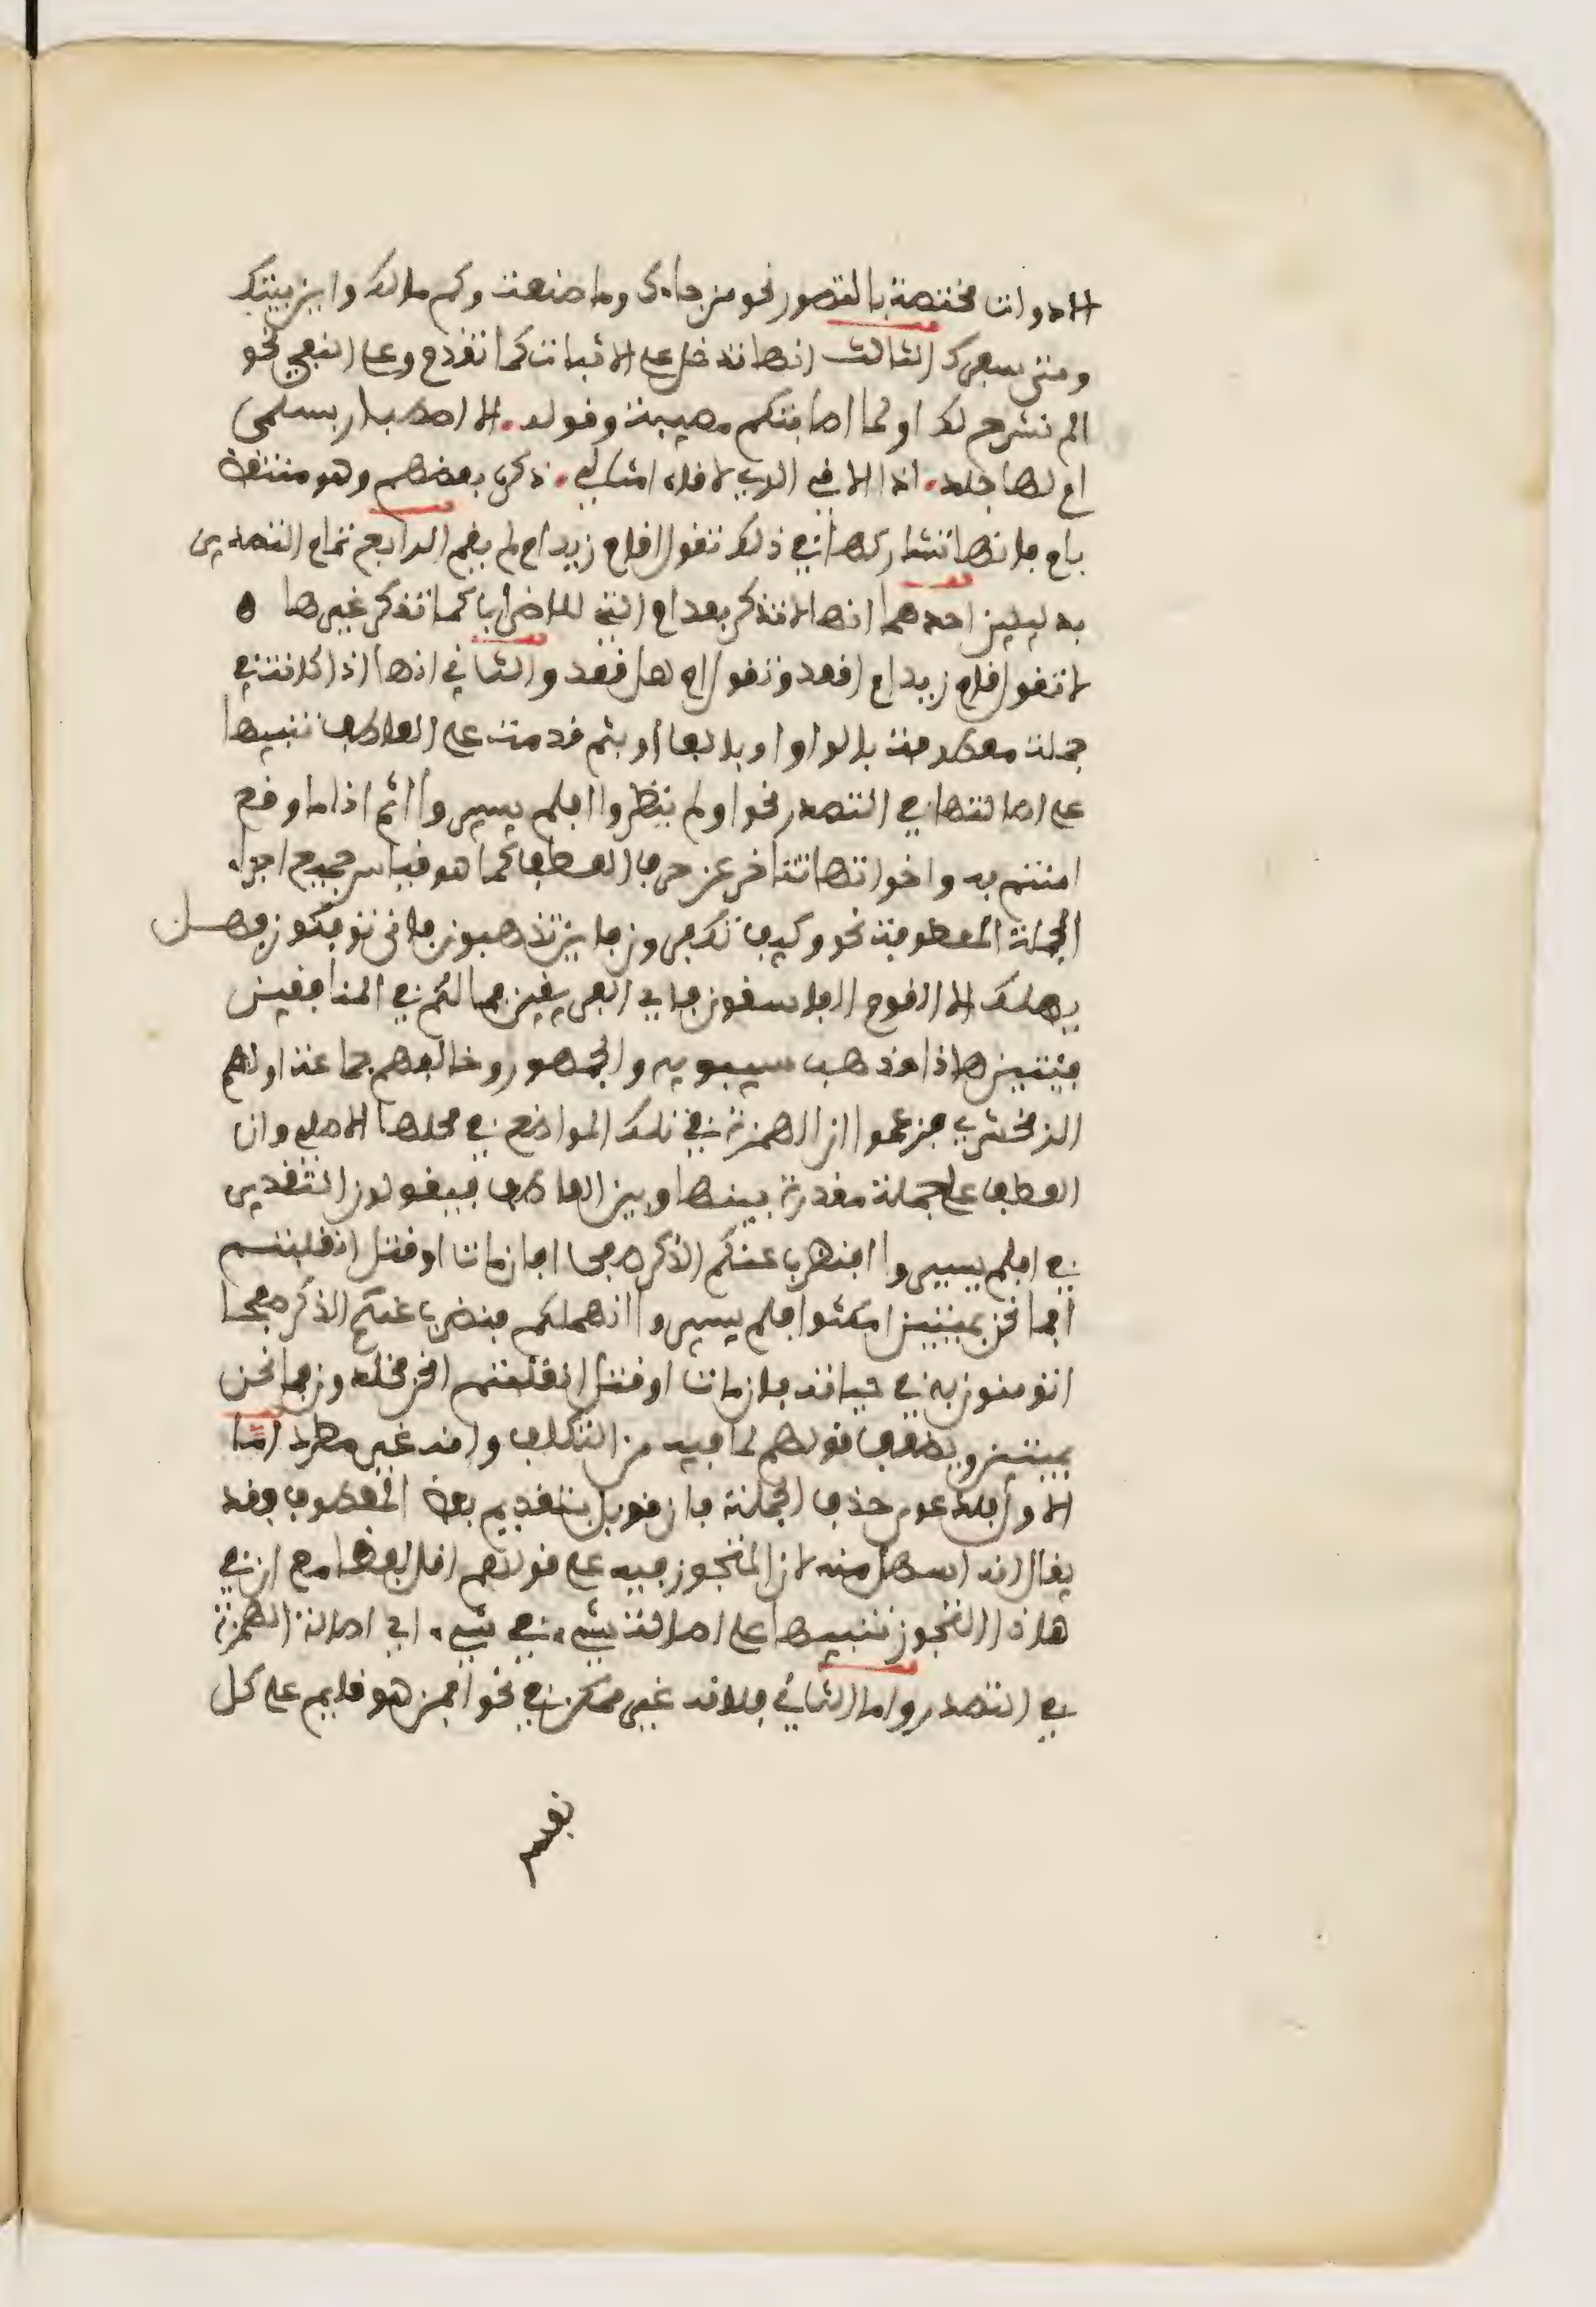 الادوات مختصة بالتصور نحو من جاءك وما صنعت وكم مالك واين بيتك
ومتى سفرك الثالث انها تدخل على الاثبات كما تقدم وعلى النفي نحو
الم نشرح لك اولما اصابتكم مصيبة وقوله الا اصطبار بسلمى
ام لها جلد اذا الافي الذي لاقاه امثالي ذكره بعضهم وهو منتقض
بام فانها تشاركها في ذلك تقول اقام زيد ام لم يقم الرابع تمام التصدير
بدليلين احدهما انها لا تذكر بعد ام التي للاضراب كما تذكر غيرها ه
لا تقول اقام زيد ام اقعد وتقول ام هل قعد والثاني انها اذا كانت في
جملة معطوفة بالواو او بالفا او بثم قدمت على العاطف تنبيها
على اصالتها في التصدر نحو اولم ينظروا افلم يسيروا اثم اذا ما وقع
امنتم به واخواتها تتاخر عن حرف العطف كما هو قياس جميع اجزاء
الجملة المعطوفة نحو وكيف تكفرون فاين تذهبون فانى توفكون فهل
يهلك الا القوم الفاسقون فاي الفريقين فما لكم في المنافقين
فيتين هاذا مذهب سيبويه والجمهور وخالفهم جماعة اولهم
الزمخشري فزعموا ان الهمزة في تلك المواضع في محلها الاصلي وان
العطف على جملة مقدرة بينها وبين العاطف فيقولون التقدير
في افلم يسيروا افنضرب عنكم الذكر صفحا افان مات او قتل انقلبتم
افما نحن بميتين امكثوا فلم يسيروا انهملكم فنضرب عنكم الذكر صفحا
اتومنون به في حياته فان مات او قتل انقلبتم انحن مخلدون فما نحن
بميتين ويضعف قولهم لما فيه من التكلف وانه غير مطرد اما
الاول فلدعوى حذف الجملة فان قوبل بتقديم بعض المعطوف فقد
يقال انه اسهل منه لان المتجوز فيه على قولهم اقل لفظا مع ان في
هاذا التجوز تنبيها على اصالة شيء في شيء اي اصالة الهمزة
في التصدر واما الثاني فلانه غير ممكن في نحو افمن هو قايم على كل
نفس